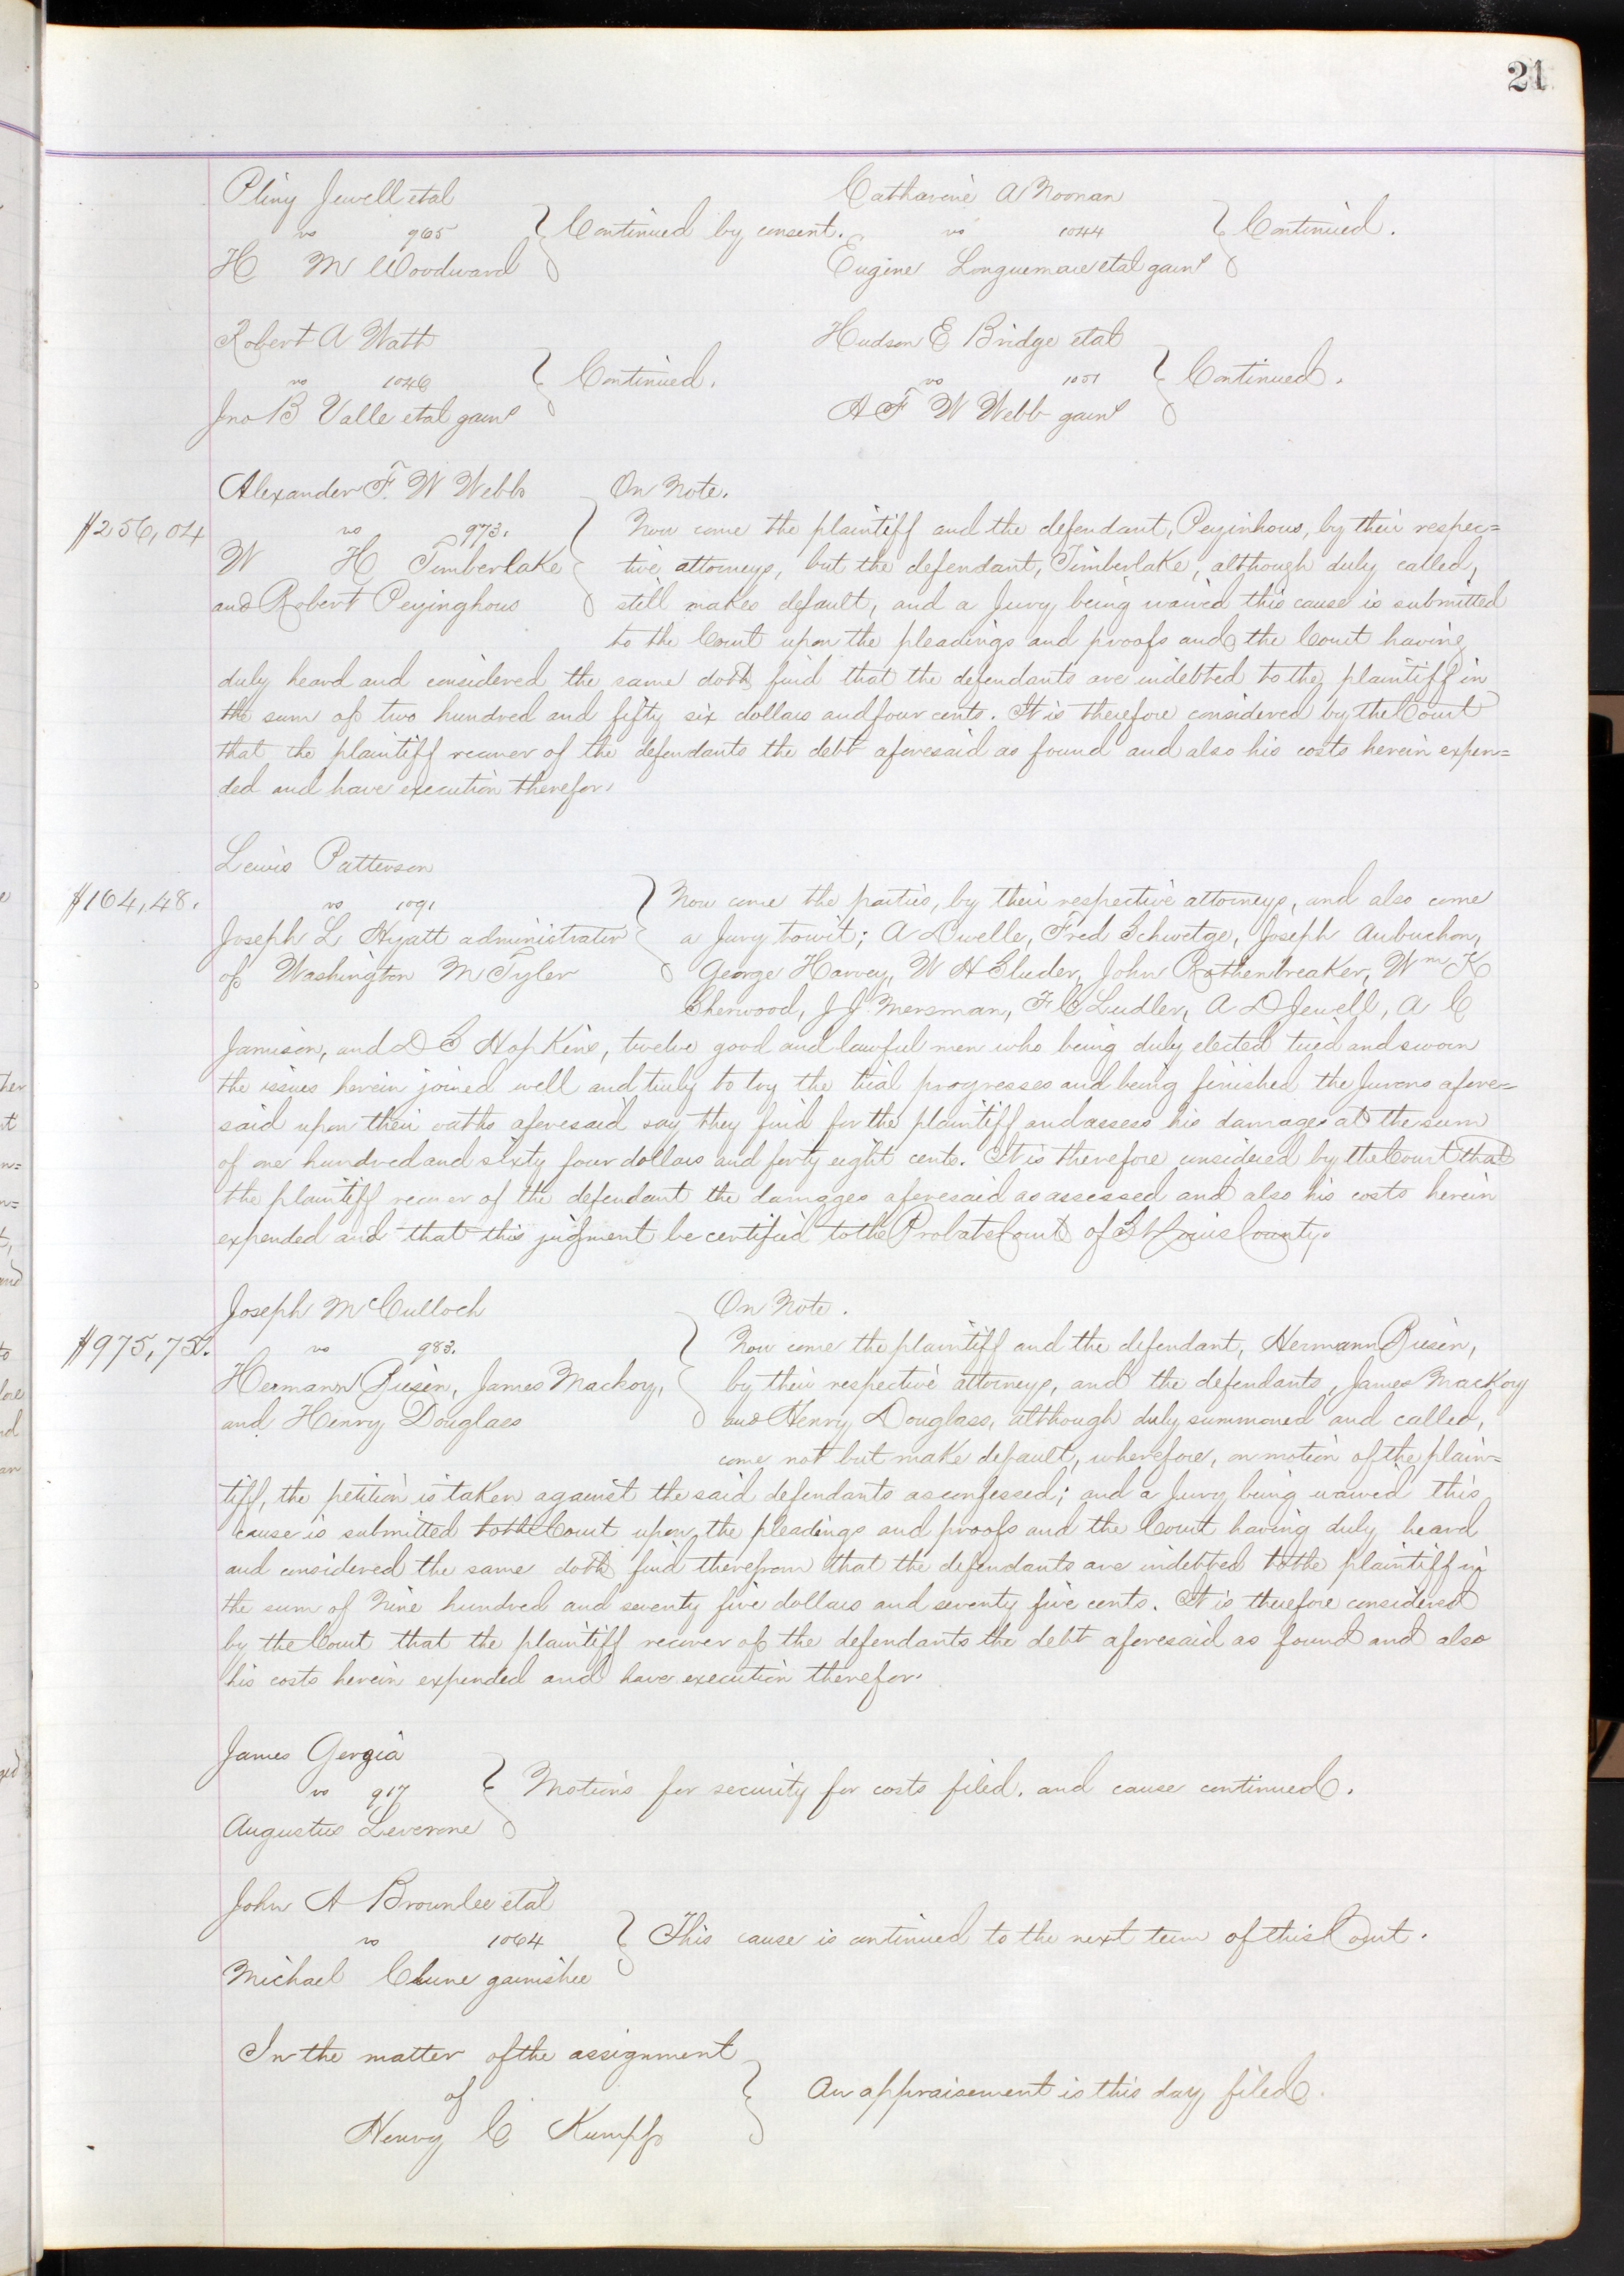 21
Pliny Jewell etal
vs 965
H M Woodward
Continued by consent.
Catharine A Noonan
vs 1044
Eugene Longuemare etal garn
Continued.
Robert A Watt
vs 1046
Jno B Valle etal garn
Continued.
Hudson E Bridge etal
vs 1051
A F W Webb garn
Continued.
Alexander F. W Webb
$256,04
vs 973.
W H Timberlake
and Robert Peyinghous
On Note.
Now come the plaintiff and the defendant, Peyinhous, by their respec=
tive attorneys, but the defendant, Timberlake, although duly called,
still makes default, and a Jury being waived this cause is submitted
to the Court upon the pleadings and proofs and the Court having
duly heard and considered the same doth find that the defendants are indebted to the plaintiff in
the sum of two hundred and fifty six dollars and four cents. It is therefore considered by the Court
that the plaintiff recover of the defendants the debt aforesaid as found and also his costs herein expen=
ded and have execution therefor.
Lewis Patterson
$164,48.
vs 1091
Joseph L Hyatt administrator
of Washington M Tyler
Now come the parties, by their respective attorneys, and also come
a Jury towit; A Dwelle, Fred Schwetge, Joseph Aubuchon,
George Harvey, W H Studer, John Rothenbreaker, Wm K
Sherwood, J J Mersman, F C Ludler, A D Jewell, A C
Jamison, and D S Hopkins, twelve good and lawful men who being duly elected tried and sworn
the issues herein joined well and truly to try the trial progresses and being finished the Jurors afore=
said upon their oaths aforesaid say they find for the plaintiff and assess his damages at the sum
of one hundred and sixty four dollars and forty eight cents. It is therefore considered by the Court that
the plaintiff recover of the defendant the damages aforesaid as assessed and also his costs herein
expended and that this judgment be certified to the Probate Court of St Louis County.
Joseph McCulloch
$975,75.
vs 983.
Hermann Riesen, James Mackoy,
and Henry Douglass
On Note.
Now come the plaintiff and the defendant, Hermann Riesen,
by their respective attorneys, and the defendants, James Mackoy
and Henry Douglass, although duly summoned and called,
come not but make default, wherefore, on motion of the plain=
tiff, the petition is taken against the said defendants as confessed; and a Jury being waived this
cause is submitted to the Court upon the pleadings and proofs and the Court having duly heard
and considered the same doth find therefrom that the defendants are indebted to the plaintiff in
the sum of Nine hundred and seventy five dollars and seventy five cents. It is therefore considered
by the Court that the plaintiff recover of the defendants the debt aforesaid as found and also
his costs herein expended and have execution therefor.
James Gergia
vs 917
Augustus Leverone
Motions for security for costs filed. and cause continued.
John A Brownlee etal
vs 1064
Michael Clune garnishee
This cause is continued to the next term of this Court.
In the matter of the assignment
of
Henry C Kumpf
An appraisement is this day filed.